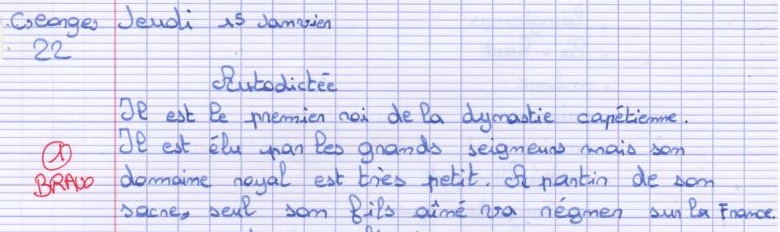 Georges Jeudi 15 Janvier
22
Autodictée
Il est le premier roi de la dynastie capétienne.
Il est élu par les grands seigneurs mais son
① BRAVO domaine royal est très petit. A partir de son
sacre, seul son fils aîné va régner sur la France.